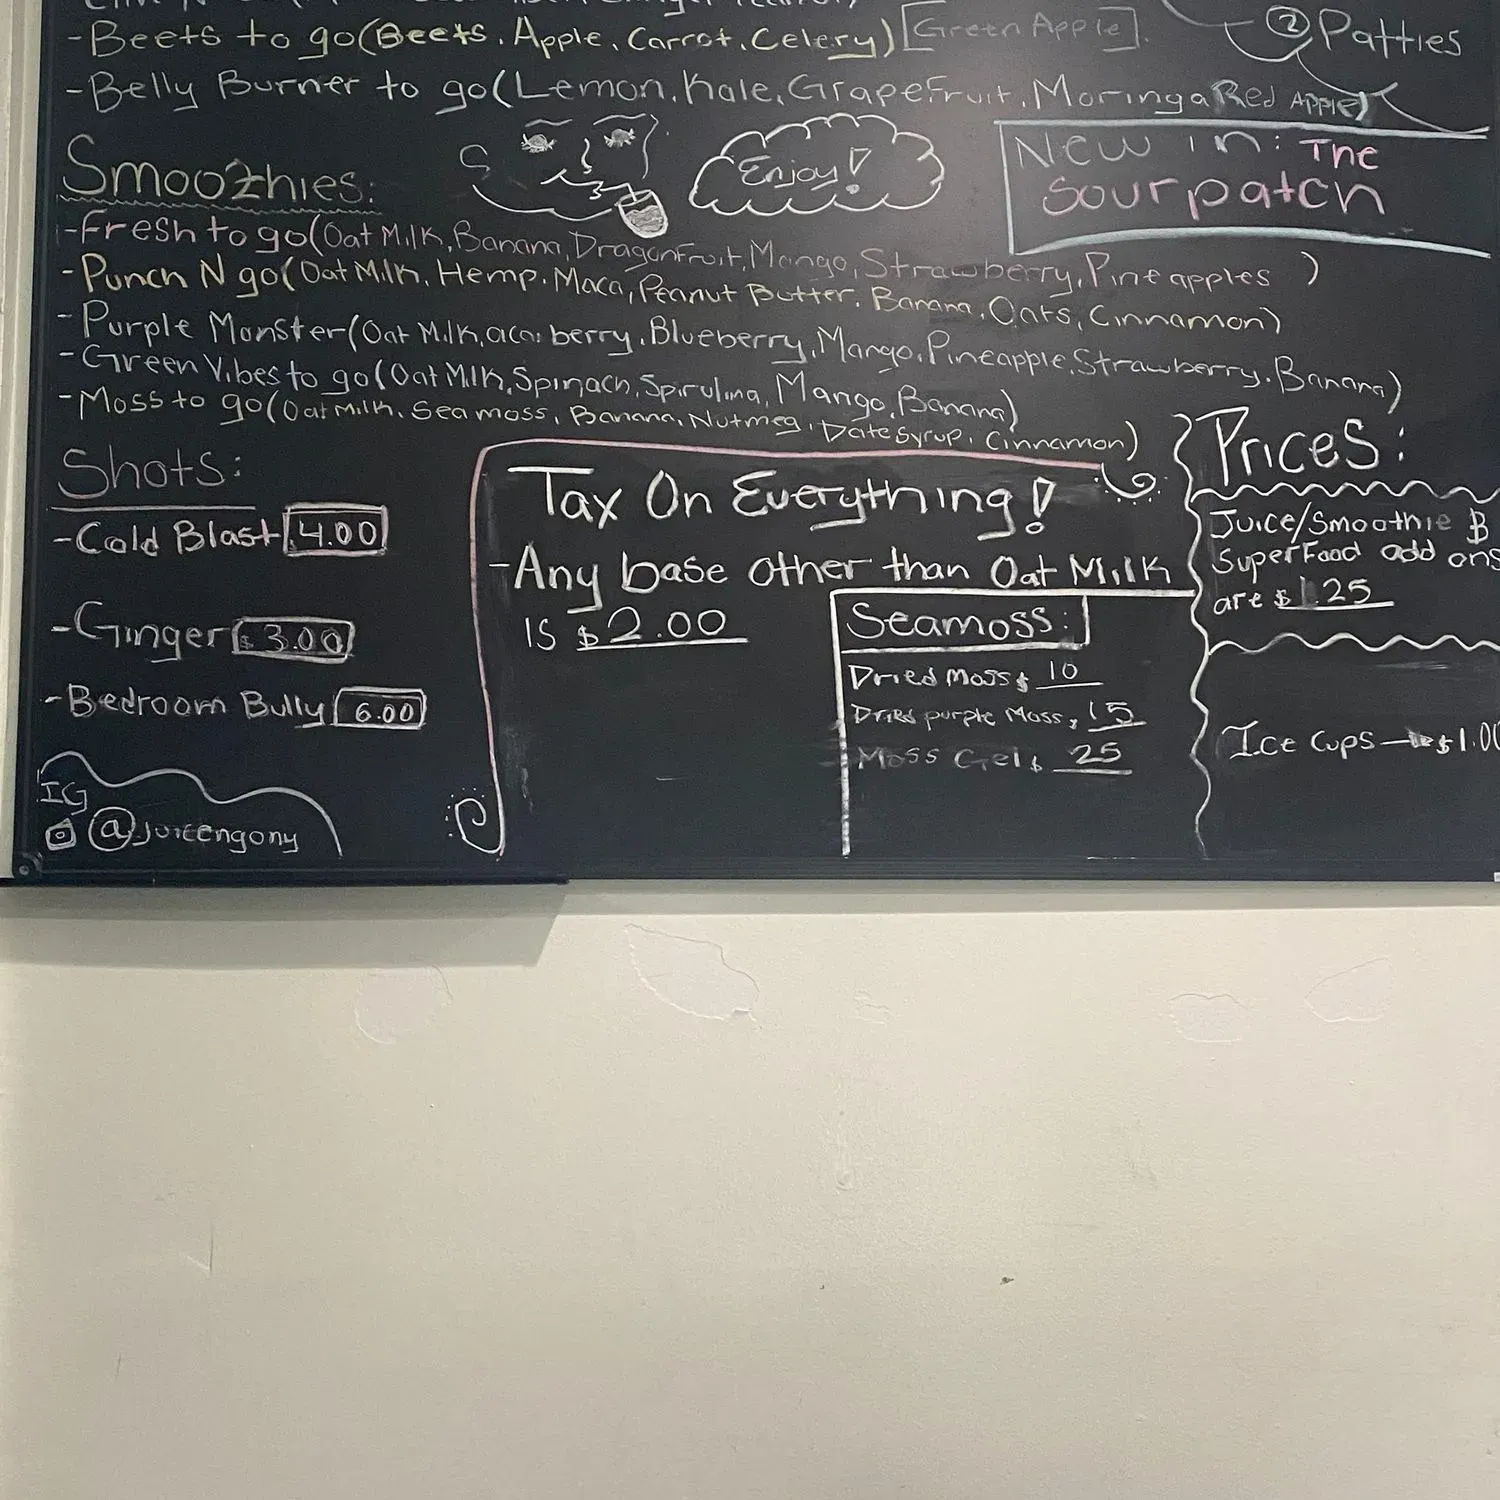 -Beets to go(Beets, Apple, Carrot, Celery) [Green Apple].
② Patties
-Belly Burner to go(Lemon, Kale, Grapefruit, Moringa Red Apple)
Smoothies:
Enjoy!
New in: The
sourpatch
-Fresh to go(Oat Milk, Banana, Dragonfruit, Mango, Strawberry, Pineapples )
-Punch N go(Oat Milk, Hemp, Maca, Peanut Butter, Banana, Oats, Cinnamon)
-Purple Monster(Oat Milk, acai berry, Blueberry, Mango, Pineapple, Strawberry, Banana)
-Green Vibes to go(Oat Milk, Spinach, Spirulina, Mango, Banana)
-Moss to go(Oat Milk, Sea moss, Banana, Nutmeg, Date Syrup, Cinnamon)
Shots:
-Cold Blast 4.00
-Ginger $3.00
-Bedroom Bully 6.00
IG
@juicengony
Tax On Everything!
-Any base other than Oat Milk
is $2.00
Seamoss:
Dried Moss $ 10
Dried purple Moss $ 15
Moss Gel $ 25
Prices:
Juice/Smoothie B
Superfood add ons
are $1.25
Ice Cups → $1.00